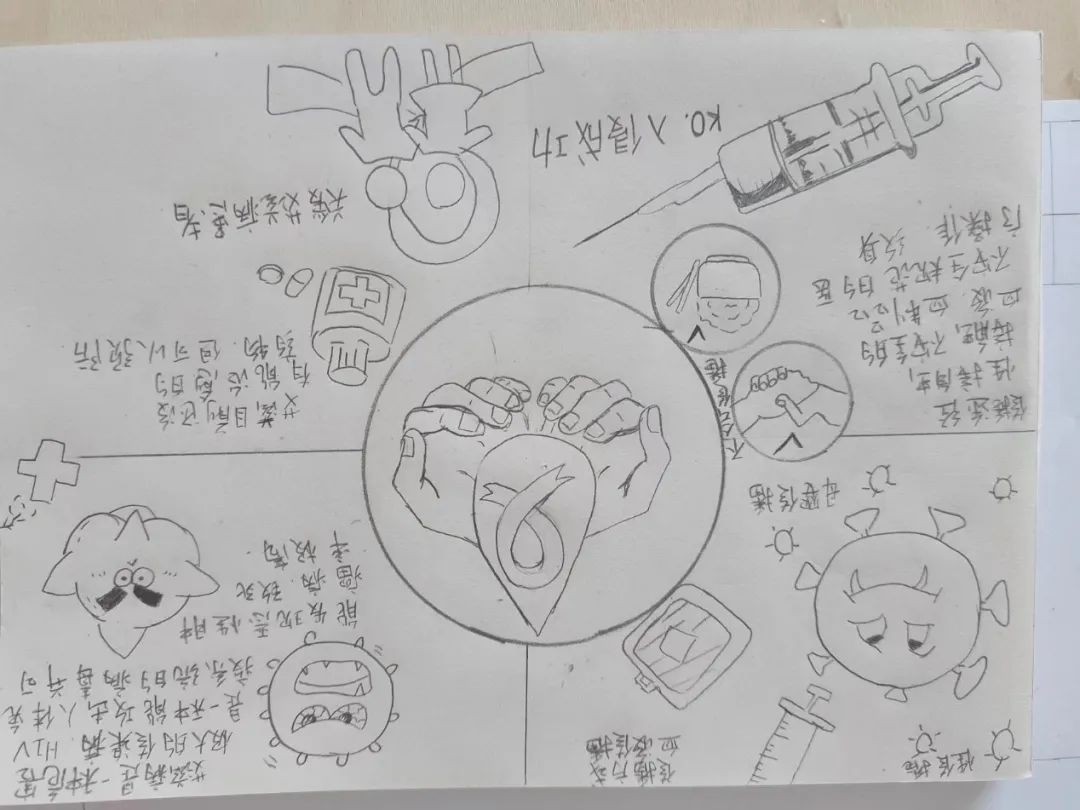 性传播
传播方式
血液传播
母婴传播
艾滋病是一种危害
极大的传染病. HIV
是一种能攻击人体免
疫系统的病毒 并可
能发现恶性肿
瘤. 病 致死
率极高
传播途径
性接触,
接触, 不安全的
血液. 血制品
不安全规范的医 纹身
操作.
不会传播
艾滋目前还没
有能治愈的
药物. 但可以预防
艾滋病患者
KO. 入侵成功